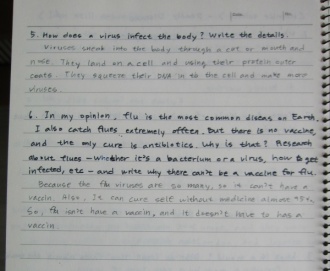 5. How does a virus infect the body? Write the details.
Viruses sneak into the body through a cut or mouth and
nose. They land on a cell and using their protein outer
coats. They squeeze their DNA in to the cell and make more
viruses.
6. In my opinion, flu is the most common diseas on Earth.
I also catch flues extremely offen. But there is no vaccine,
and the only cure is antibiotics. Why is that? Research
about flues - whether it's a bacterium or a virus, how to get
infected, etc - and write why there can't be a vaccine for flu.
Because the flu viruses are so many, so it can't have a
vaccin. Also, it can cure self without medicine almose
So, flu isn't have a vaccin, and it doesn't have to has a
vaccin